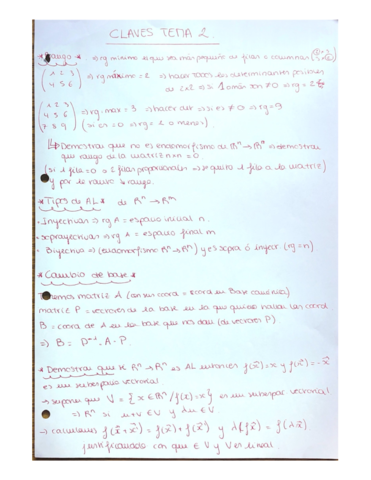 CLAVES TEMA 2.
* Rango * → rg máximo es que sea más pequeño de filas o columnas
(1 2 3 / 4 5 6) ⇒ rg máximo = 2 ⇒ hacer todos los determinantes posibles
de 2x2 ⇒ si 1 o más son ≠ 0 ⇒ rg = 2
(1 2 3 / 4 5 6 / 7 8 9) ⇒ rg max = 3 ⇒ hacer det ⇒ si es ≠ 0 ⇒ rg = 3
(si es = 0 ⇒ rg = 2 o menos)
Demostrar que no es endomorfismo de ℝⁿ → ℝⁿ ⇒ demostrar
que rango de la matriz n×n = 0.
(si 1 fila = 0 o 2 filas proporcionales ⇒ se quita 1 fila a la matriz)
y por lo tanto ↓ rango.
* Tipos de AL * de ℝⁿ → ℝᵐ
- Inyectiva ⇒ rg A = espacio inicial n.
- sobreyectiva ⇒ rg A = espacio final m
- Biyectiva ⇒ (endomorfismo ℝⁿ → ℝⁿ) y es sobre ó inyect. (rg = n)
* Cambio de base *
matriz A (con sus coord = coord en Base canónica)
matriz P = vectores de la base en la que quiero hallar las coord
B = coord de A en la base que nos dan (de vectores P)
⇒ B = P⁻¹ · A · P.
* Demostrar que si ℝⁿ → ℝⁿ es AL entonces f(x⃗) = x y f(x⃗) = -x⃗
es un subespacio vectorial
→ supone que V = { x ∈ ℝⁿ / f(x) = x } es un subespac vectorial
⇒ ℝⁿ si u + v ∈ V y λu ∈ V
→ calculamos f(x⃗ + x⃗) = f(x⃗) + f(x⃗) y λf(x⃗) = f(λx⃗)
justificándolo con que ∈ V y V es lineal